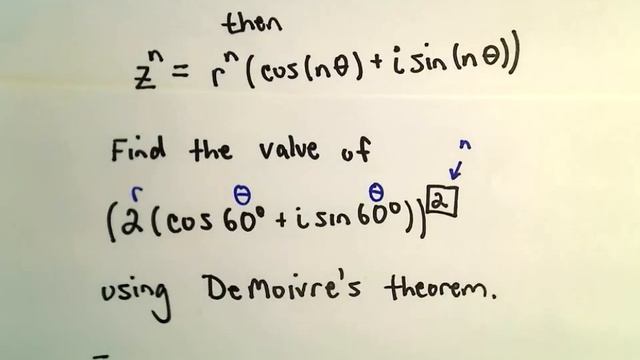 then
zⁿ = rⁿ (cos(nθ) + i sin(nθ))
Find the value of
n
r θ θ
(2(cos 60° + i sin 60°))²
using DeMoivre's theorem.